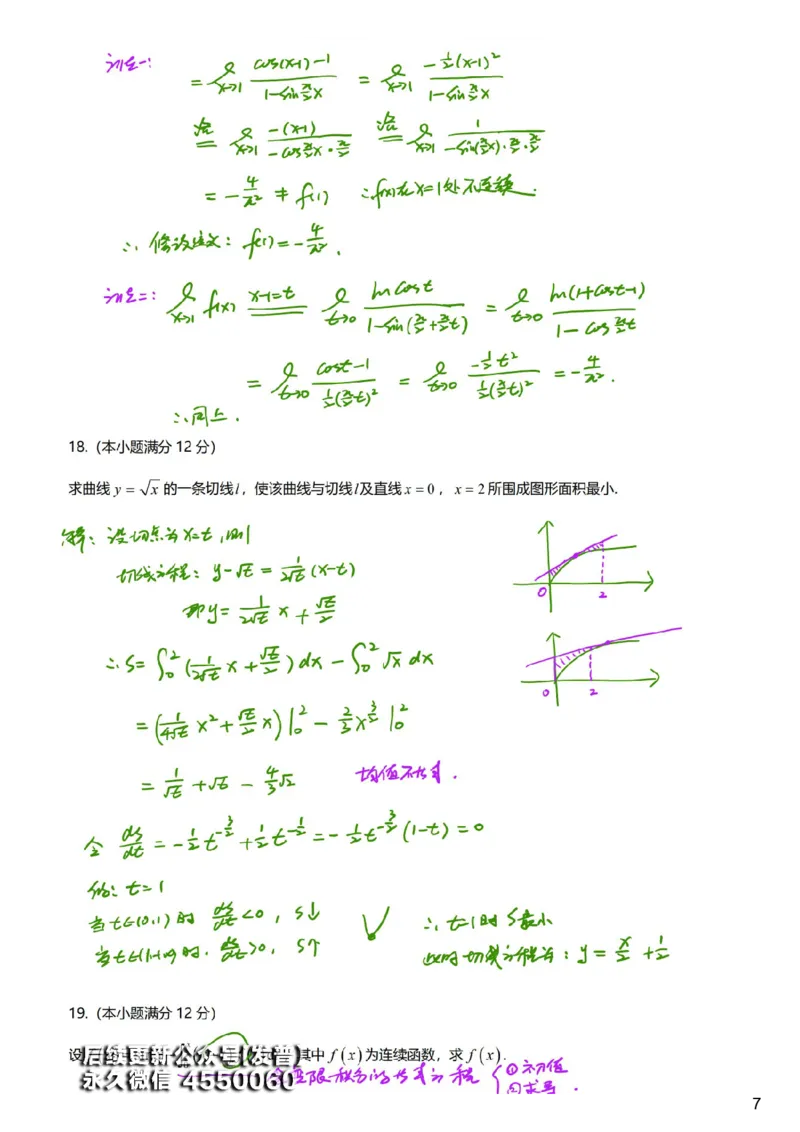 法一:
= lim_{x→1} (cos(x-1)-1)/(1-sin(π/2)x) = lim_{x→1} (-½(x-1)²)/(1-sin(π/2)x)
洛 = lim_{x→1} (-(x-1))/(-cos(π/2)x·π/2) 洛 = lim_{x→1} 1/(-sin(π/2 x)·π/2·π/2)
= -4/π² ≠ f(1) ∴f(x)在x=1处不连续.
∴ 修改定义: f(1)=-4/π².
法二: lim_{x→1} f(x) x-1=t = lim_{t→0} ln cost/(1-sin(π/2+π/2 t)) = lim_{t→0} ln(1+cost-1)/(1-cos(π/2)t)
= lim_{t→0} (cost-1)/(½(π/2 t)²) = lim_{t→0} (-½t²)/(½(π/2 t)²) = -4/π².
∴同上.
18.(本小题满分 12 分)
求曲线 y = √x 的一条切线 l,使该曲线与切线 l 及直线 x = 0, x = 2 所围成图形面积最小.
解: 设切点为 x=t, 则
切线方程: y-√t = 1/(2√t) (x-t)
即 y = 1/(2√t) x + √t/2
0 2
∴ S= ∫₀² (1/(2√t) x + √t/2) dx - ∫₀² √x dx
0 2
= (1/(4√t) x² + √t/2 x)|₀² - 2/3 x^{3/2} |₀²
= 1/√t + √t - 4/3 √2 均值不等式.
令 ds/dt = -½ t^{-3/2} + ½ t^{-1/2} = -½ t^{-3/2} (1-t) = 0
得: t=1
当t∈(0,1)时 ds/dt<0, S↓ ∴ t=1时 S最小
当t∈(1,+∞)时, ds/dt>0, S↑ 此时切线方程为: y = x/2 + 1/2
19.(本小题满分 12 分)
设 后续更新公众号(发普) 其中 f(x) 为连续函数,求 f(x).
永久微信 4550060 变限积分的 方程 { ①初值
②求导.
7